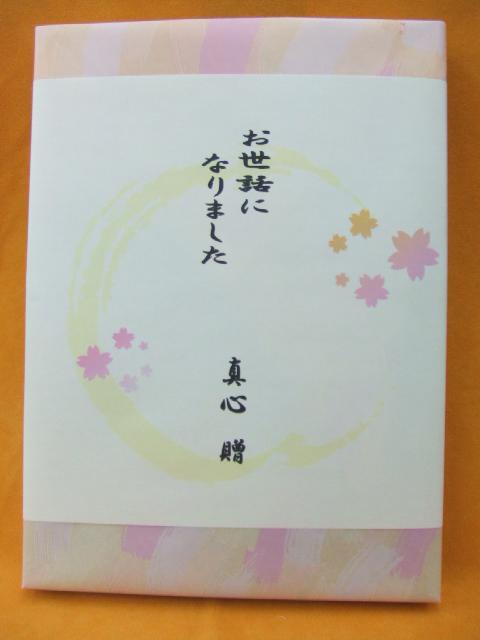 お世話に
なりました
真心 贈